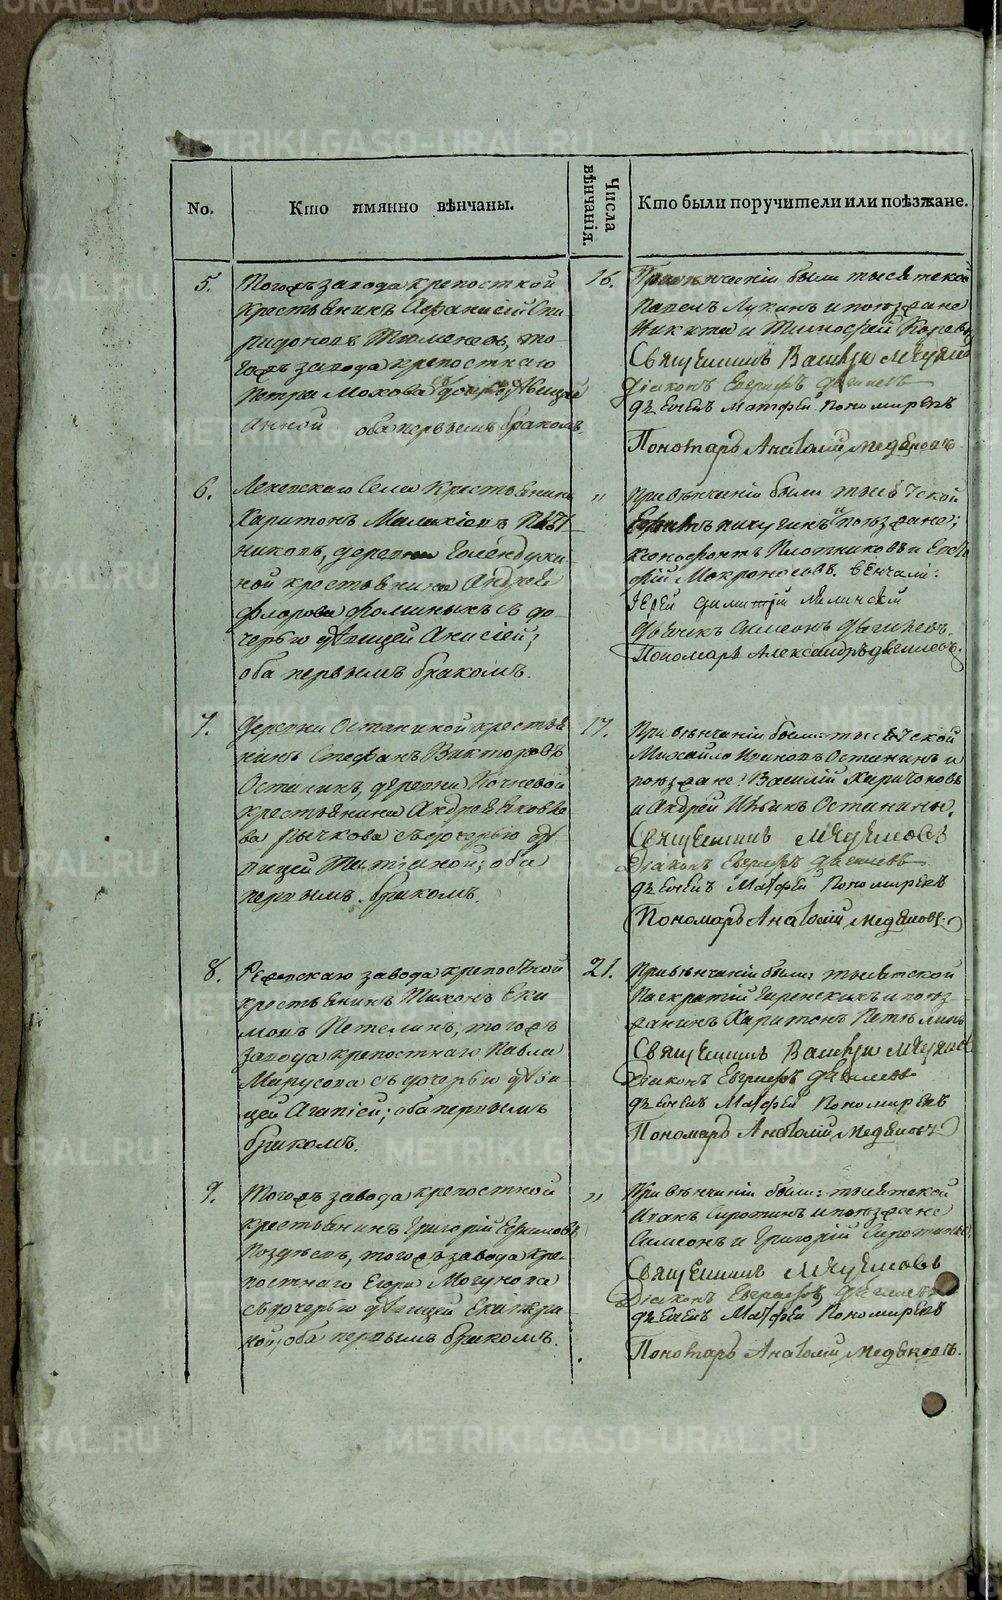 No.
Кто имянно вѣнчаны.
Числа вѣнчанія.
Кто были поручители или поѣзжане.
5.
Тогожъ завода крепостной
крестьянинъ Афанасій Спи
ридоновъ Тюменевъ, то-
гожъ завода крепостнаго
Петра Мохова дочерью дѣвицей
Анной оба первымъ бракомъ.
16.
При венчаніи были тысятской
Павелъ Лукинъ и поѣзжане
Никита и Тимофей
Священникъ Василій
Діаконъ Евграфъ
дьячекъ Матфей Пономаревъ
Пономарь Анатолий Медведевъ
6.
Леневскаго Села крестьянинъ
Харитонъ Малахіевъ
никовъ, деревни Голендухи
ной крестьянина Андрея
Флорова Фоминыхъ съ до-
черью дѣвицей Анисіей;
оба первымъ бракомъ.
"
При вѣнчаніи были тысятской
Пичугинъ и поѣзжане;
Ксенофонтъ Плотниковъ и
Мокроносовъ. вѣнчали:
Іерей Димитрій
Дьячекъ Симеонъ
Пономарь Александръ
7.
Деревни Останиной крестья
нинъ Стефанъ Викторовъ
Останинъ, деревни Кочневой
крестьянина Андрея Яковле
ва Рычкова съ дочерью дѣ
вицей Татіаной; оба
первымъ бракомъ.
17.
При вѣнчаніи были: тысятской
Михайло Ивановъ Останинъ и
поѣзжане: Василій Харитоновъ
и Андрей Останины.
Священникъ
Діаконъ Евграфъ
дьячекъ Матфей Пономаревъ
Пономарь Анатолий Медведевъ
8.
Режевскаго завода крепостной
крестьянинъ Тихонъ Еки
мовъ Петелинъ, тогожъ
завода крепостнаго Павла
Марусова съ дочерью дѣви
цей Агапіей; оба первымъ
бракомъ.
21.
При вѣнчаніи были: тысятской
Панкратій и поѣз
жанинъ Харитонъ Петелинъ
Священникъ Василій
Діаконъ Евграфъ
дьячекъ Матфей Пономаревъ
Пономарь Анатолий Медведевъ
9.
Тогожъ завода крепостной
крестьянинъ Григорій Ефимовъ
Поздеевъ, тогожъ завода кре-
постнаго Егора Могунова
съ дочерью дѣвицей Екатери
ной; оба первымъ бракомъ.
"
При вѣнчаніи были: тысятской
Иванъ Сиротинъ и поѣзжане
Симеонъ и Григорій Сиротины
Священникъ
Діаконъ Евграфъ
дьячекъ Матфей Пономаревъ
Пономарь Анатолий Медведевъ.
METRIKI.GASO-URAL.RU